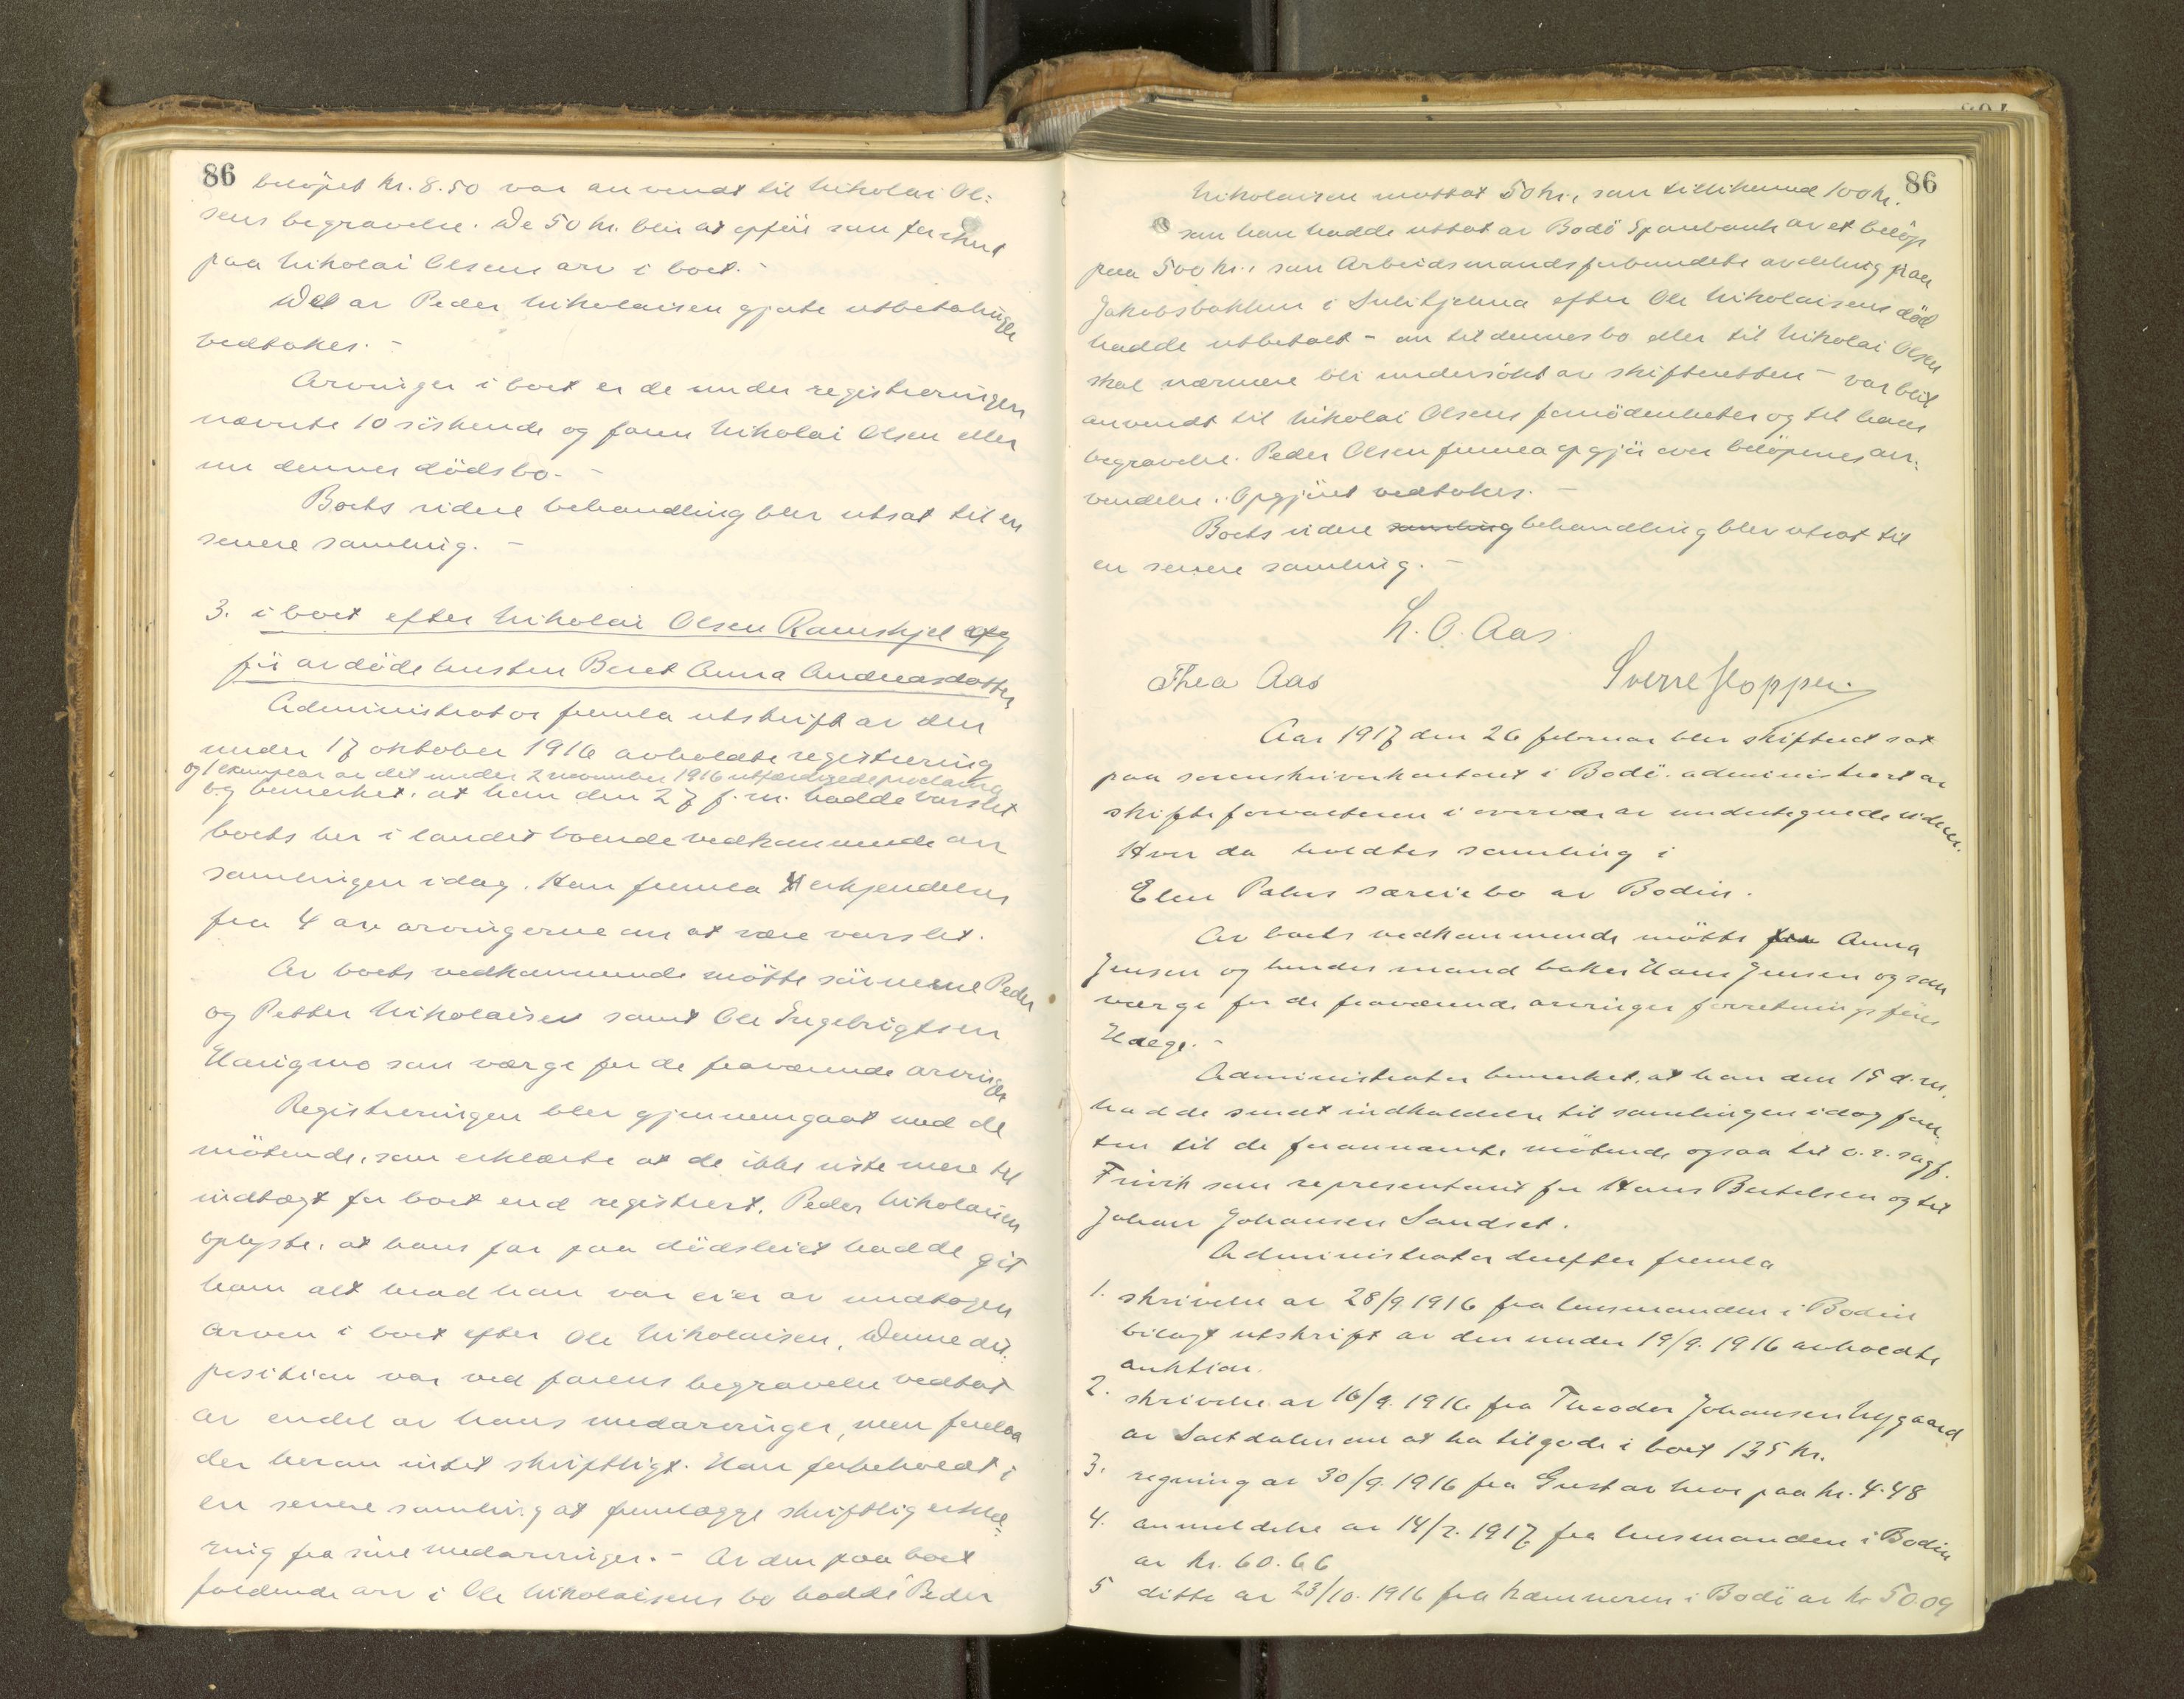 86
beløpet kr. 8.50 var anvendt til Nikolai Ol:
sens begravelse. De 50 kr. blir at opføre som forskud
paa Nikolai Olsens arv i boet. -
Det av Peder Nikolaisen gjorte utbetalinger
vedtokes. -
Arvinger i boet er de under registreringen
nævnte 10 søskende og faren Nikolai Olsen eller
nu dennes dødsbo. -
Boets videre behandling blev utsat til en
senere samling. -
3. i boet efter Nikolai Olsen Ramskjel og
før avdøde hustru Beret Anna Andreasdatter
Administrator fremla utskrift av den
under 17 oktober 1916 avholdte registrering
og 1 exemplar av det under 2 november 1916 utfærdigede proclama
og bemerket, at han den 27 f.m. hadde varslet
boets her i landet boende vedkommende om
samlingen idag. Han fremla erkjendelser
fra 4 av arvingerne om at være varslet.
Av boets vedkommende møtte sønnerne Peder
og Petter Nikolaisen samt Ole Engebrigtsen
Haugmo som værge for de fraværende arvinger
Registreringen blev gjennemgaat med de
møtende, som erklærte at de ikke viste mere til
indtægt for boet end registrert. Peder Nikolaisen
oplyste, at hans far paa dødsleiet hadde git
ham alt hvad han var eier av undtagen
arven i boet efter Ole Nikolaisen. Denne dis:
position var ved farens begravelse vedtat
av endel av hans medarvinger, men forelaa
der herom intet skriftligt. Han forbeholdt i
en senere samling at fremlægge skriftlig erklæ:
ring fra sine medarvinger. - Av den paa boet
faldende arv i Ole Nikolaisens bo hadde Peder
86
Nikolaisen mottat 50 kr., som tillikemed 100 kr.
som han hadde uttat av Bodø Sparebank av et beløp
paa 500 kr., som Arbeidsmandsforbundets avdeling paa
Jakobsbakken i Sulitjelma efter Ole Nikolaisens død
hadde utbetalt - om til dennes bo eller til Nikolai Olsen
skal nærmere bli undersøkt av skifteretten - var blit
anvendt til Nikolai Olsens fornødenheter og til hans
begravelse. Peder Olsen fremla opgjør over beløpenes an:
vendelse. Opgjøret vedtokes. -
Boets videre samling behandling blev utsat til
en senere samling. -
L. O. Aas.
Thea Aas
Sverre Hoppen
Aar 1917 den 26 februar blev skifteret sat
paa sorenskriverkontoret i Bodø. administrert av
skifteforvalteren i overvær av undertegnede vidner.
Hvor da holdtes samling i
Elen Palms særeiebo av Bodin.
Av boets vedkommende møtte fra Anna
Jensen og hendes mand baker Hans Jensen og som
værge for de fraværende arvinger forretningsfører
Hæge. -
Administrator bemerket, at han den 15 d.m.
hadde sendt indkaldelse til samlingen idag foru:
ten til de forannævnte møtende ogsaa til o.r. sagf.
Friih som representant for Hans Bertelsen og til
Johan Johansen Sandset.
Administrator derefter fremla
1. skrivelse av 28/9 1916 fra lensmanden i Bodin
bilagt utskrift av den under 19/9. 1916 avholdte
auktion.
2. skrivelse av 16/9. 1916 fra Theodor Johansen Nygaard
av Saltdalen om at ha tilgode i boet 135 kr.
3. regning av 30/9. 1916 fra Gustav Moe paa kr. 4.48
4. anmeldelse av 14/2. 1917 fra lensmanden i Bodin
av kr. 60.66
5 ditto av 23/10. 1916 fra kæmneren i Bodø av kr 50.09